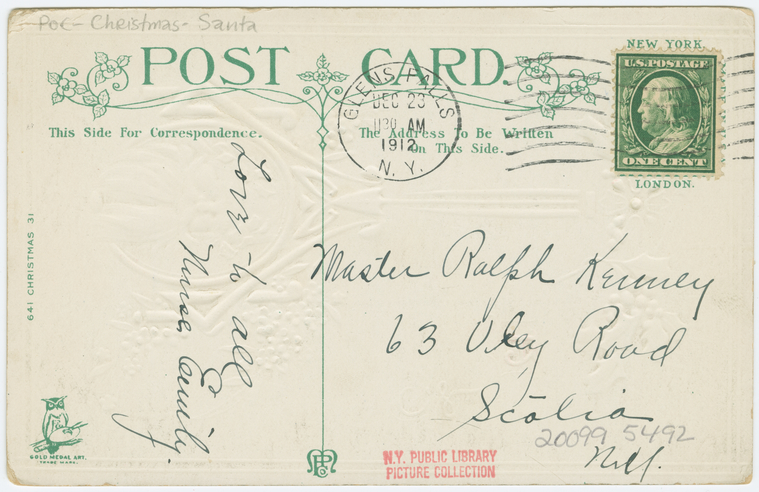 Poc - Christmas - Santa
POST CARD.
NEW YORK
U.S. POSTAGE
ONE CENT
LONDON.
GLENS FALLS
DEC 23
AM
1912
N. Y.
This Side For Correspondence.
The Address To Be Written
On This Side.
Love to all
Nurse Emily.
Master Ralph Kenney
63 Road
Scotia
20099 5492
N.Y.
641 CHRISTMAS 31
GOLD MEDAL ART.
TRADE MARK.
N.Y. PUBLIC LIBRARY
PICTURE COLLECTION